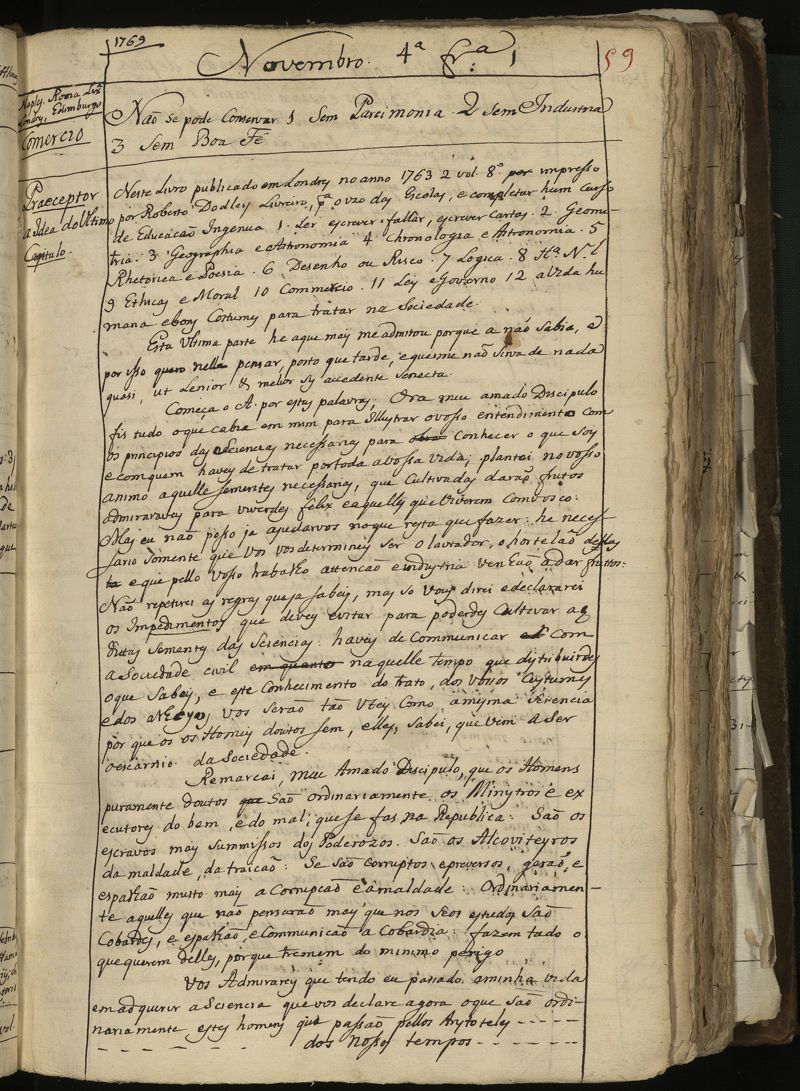 1769
Novembro. 4ª frª 1
59
Naply, Roma
Londrey, Edimburgo
Comercio
Não se pode Conservar 1 Sem Parcimonia 2 Sem Industria
3 Sem Boa Fé
Praeceptor
a Idea do Ultimo
Capitulo.
Neste Livro publicado em Londrey no anno 1763 2 vol. 8º impresso
por Roberto Dodley Livreiro, pª o uzo das Escolas, e completar hum Curso
de Educacaõ Ingenua 1. Ler escrever fallar, escrever Cartas. 2. Geome-
tria. 3 Geographia e Astronomia 4 Chronologia e Astronomia. 5
Rhetorica e Poesia. 6 Desenho ou Risco. 7 Logica. 8 Hª. Nªl
9 Ethicas e Moral 10 Commercio. 11 Ley e Governo 12 a Vida hu
mana e bons Costumes para tratar na Sociedade.
Esta Ultima parte he aque mais me admirou porque a não Sabia, e
por isso quero nella pensar, posto que tarde, e que me naõ Sirva de nada
quasi, ut Lenior & melior sis accedente Senecta.
Começa o A. por estas palavras, Ora meu amado Discipulo
fis tudo o que cabia em mim para Illustrar o vosso entendimento com
os principios das Sciencias necessarias para Conhecer o que Soys
e com quem haveis de tratar por toda a vossa vida; plantei no vosso
animo aquelle Sementes necessarias, que Cultivadas daraõ frutos
admiraraveis para viverdes felix e aquelles que Viverem Comvosco:
Mas eu naõ posso ja ajudarvos no que resta que fazer: he neces-
sario Somente que Vos vos determineis Ser o lavrador, o hortelaõ destas
e que pello Vosso trabalho attencaõ e industria venhaõ a dar fruttos:
Não repeterei as regras que ja sabeis, mas so Vos direi e declararei
os Impedimentos que deveis evitar para poderdes Cultivar aq
das Sciencias: haveis de Communicar com
a Sociedade civil naquelle tempo que distribuirdes
o que Sabeis, e este Conhecimento do trato, dos vossos Custumes
e dos , vos Seraõ taõ Uteis Como a mesma Sciencia
por que os os Homens doutos Sem, elles, Sabei, que vem a Ser
o escarnio da Sociedade.
Remarcai, meu Amado Discipulo, que os Homens
puramente doutos Saõ ordinariamente os Ministros e ex
ecutores do bem, e do mal, que se fas na Republica: Saõ os
escravos mais summissos dos Poderozos. Saõ os Alcoviteyros
da maldade, da traicaõ: Se saõ corruptos e preversos, geraõ, e
espalhaõ muito mais a Corrupcaõ e a maldade: Ordinariamen-
te aquelles que naõ pensaraõ mais que nos Seos estudos Saõ
Cobardes, e espalhaõ, e Communicaõ a Cobardia: fazem tudo o
que querem delles, porque tremem do minimo perigo
Vos Admirareis que tendo eu passado a minha vida
em adquerir a Sciencia que vos declare agora o que Saõ ordi-
nariamente estes homens que passaõ pellos Arystoteles - - - - -
- - - - - dos nossos tempos - - - - - - -